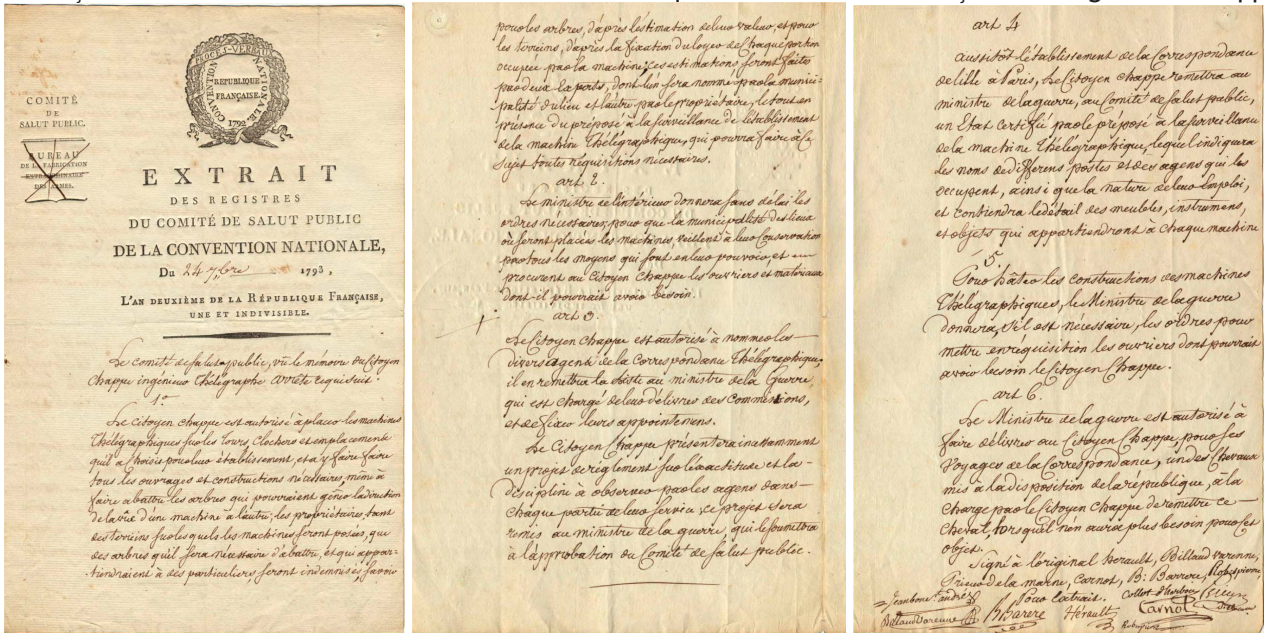 COMITÉ
DE
SALUT PUBLIC.
BUREAU
DE LA FABRICATION
EXTRAORDINAIRE
DES ARMES.
PROCES-VERBAUX
CONVENTION NATIONALE
REPUBLIQUE
FRANÇAISE.
1792.
EXTRAIT
DES REGISTRES
DU COMITÉ DE SALUT PUBLIC
DE LA CONVENTION NATIONALE,
Du 24 7bre 1793,
L'AN DEUXIÈME DE LA RÉPUBLIQUE FRANÇAISE,
UNE ET INDIVISIBLE.
Le comité de salut public, vu le mémoire du Citoyen
Chappe ingénieur thélégraphe arrête cequi suit.
1°
Le citoyen Chappe est autorisé à placer les machines
Thélégraphiques sur les Tours, Clochers et emplacements
qu'il a choisis pour leur établissement, et a y faire faire
tous les ouvrages et constructions nécessaires, même à
faire abattre les arbres qui pourraient gêner la direction
de la vue d'une machine à l'autre; les propriétaires, tant
des terreins sur lesquels les machines seront posées, que
des arbres qu'il sera nécessaire d'abattre, et qui appar-
tiendraient à des particuliers seront indemnisés, savoir
pour les arbres, d'après l'estimation de leur valeur, et pour
les terreins, d'après la fixation du loyer de chaque portion
occupée par la machine; ces estimations seront faites
par deux experts, dont l'un sera nommé par la munici-
palité du lieu et l'autre par le propriétaire, le tout en
présence du préposé à la surveillance de l'établissement
de la machine Thélégraphique, qui pourra faire à ce
sujet toutes réquisitions nécessaires.
art 2.
Le ministre de l'intérieur donnera sans délai les
ordres nécessaires, pour que la municipalité des lieux
où seront placées les machines, veillent à leur conservation
par tous les moyens qui sont en leur pouvoir, et en
procurent au Citoyen Chappe les ouvriers et matériaux
dont il pourrait avoir besoin.
art 3.
Le Citoyen Chappe est autorisé à nommer les
divers agents de la Correspondance Thélégraphique,
il en remettra la liste au ministre de la Guerre,
qui est chargé de leur délivrer des Commissions,
et de fixer leurs appointemens.
Le Citoyen Chappe présentera incessamment
un projet de règlement sur l'exactitude et la
discipline à observer par les agens dans
chaque partie de leur service; ce projet sera
remis au ministre de la guerre, qui le soumettra
à l'approbation du Comité de salut public.
art 4
aussitôt l'établissement de la Correspondance
de lille à Paris, le Citoyen Chappe remettra au
ministre de la guerre, au Comité de salut public,
un Etat certifié par le préposé à la surveillance
de la machine Thélégraphique, lequel indiquera
les noms des differens postes et des agens qui les
occupent, ainsi que la nature de leur Emploi,
et contiendra le détail des meubles, instrumens,
et objets qui appartiendront à chaque machine
5
Pour hâter les constructions des machines
Thélégraphiques, le Ministre de la guerre
donnera, s'il est nécessaire, les ordres pour
mettre en réquisition les ouvriers dont pourrait
avoir besoin le Citoyen Chappe.
art 6.
Le Ministre de la guerre est autorisé à
faire délivrer au Citoyen Chappe, pour ses
Voyages de la Correspondance, un des Chevaux
mis à la disposition de la republique, à la
charge par le Citoyen Chappe de remettre ce
cheval, lorsqu'il n'en aura plus besoin pour cet
objet.
Signé à l'original herault, Billaud varenne,
Prieur de la marne, Carnot, B: Barrere, Robespierre,
Pour extrait. Collot d'herbois
Jeanbon St andré
Billaud Varenne B Barere Hérault Carnot
Robespierre